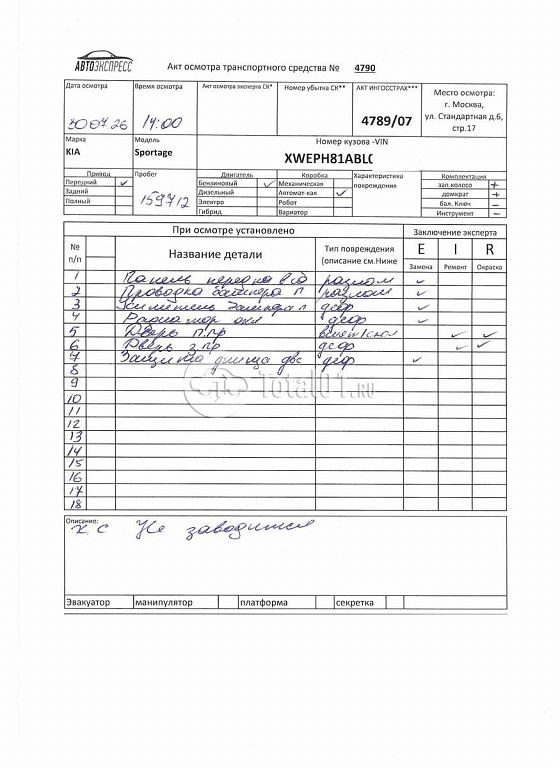 АВТОЭКСПРЕСС
Акт осмотра транспортного средства № 4790
Дата осмотра
Время осмотра
Акт осмотра эксперта СК*
Номер убытка СК**
АКТ ИНГОССТРАХ***
Место осмотра:
г. Москва,
ул. Стандартная д.6,
стр.17
14:00
4789/07
Марка
Модель
Номер кузова -VIN
KIA
Sportage
XWEPH81ABL
Привод
Пробег
Двигатель
Коробка
Характеристика повреждения
Комплектация
Передний ✓
159712
Бензиновый ✓
Механическая
зап.колесо +
Задний
Дизельный
Автомат-кая ✓
домкрат +
Полный
Электро
Робот
бал. Ключ –
Гибрид
Вариатор
Инструмент –
При осмотре установлено
Заключение эксперта
№ п/п
Название детали
Тип повреждения (описание см.Ниже
E I R
Замена Ремонт Окраска
1 Панель передка в сб разлом ✓
2 Проводка бампера п разлом ✓
3 Усилитель бампера п деф ✓
4 деф ✓
5 Дверь п.пр ✓ ✓
6 Дверь з.пр деф ✓ ✓
7 Защита днища двс деф ✓
8
9
10
11
12
13
14
15
16
17
18
Total01.ru
Описание:
х.с Не заводится
Эвакуатор
манипулятор
платформа
секретка